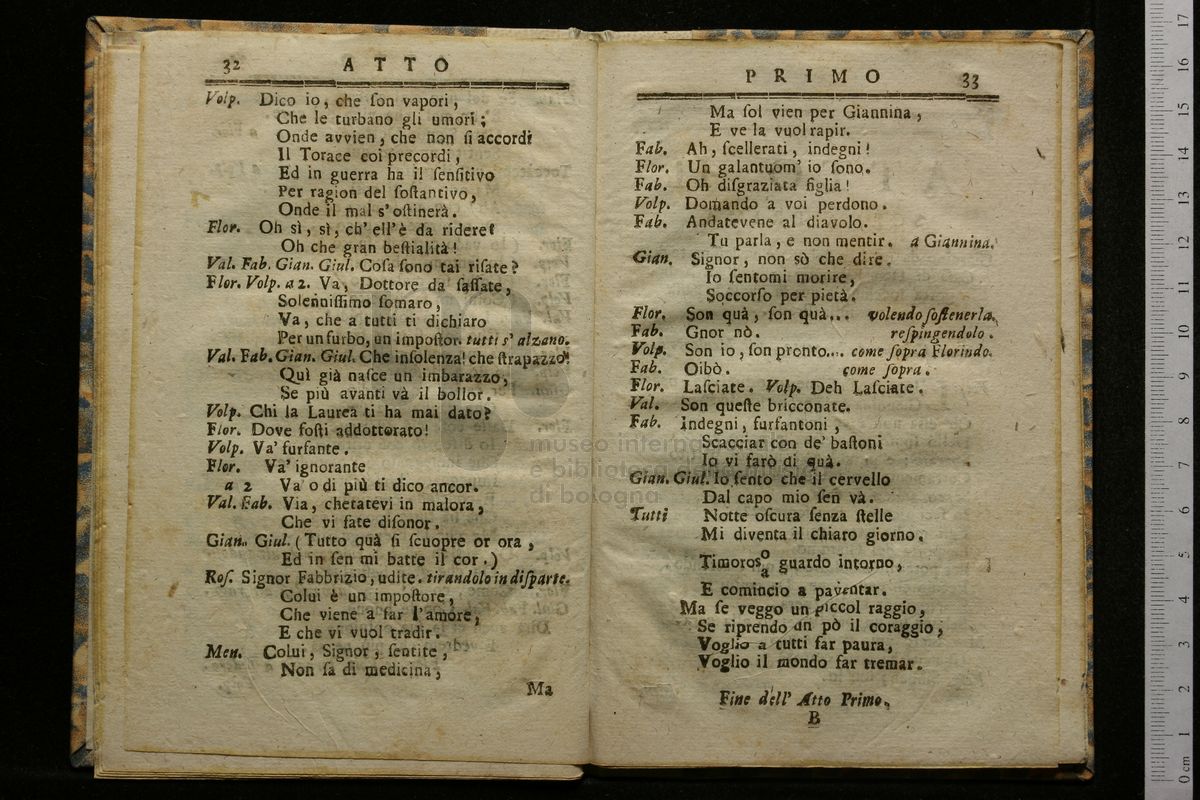 32 ATTO
Volp. Dico io, che ſon vapori,
Che le turbano gli umori;
Onde avvien, che non ſi accordi
Il Torace coi precordi,
Ed in guerra ha il ſenſitivo
Per ragion del ſoſtantivo,
Onde il mal s'oſtinerà.
Flor. Oh sì, sì, ch'ell'è da ridere!
Oh che gran beſtialità!
Val. Fab. Gian. Giul. Coſa ſono tai riſate?
Flor. Volp. a 2. Va, Dottore da' ſaſſate,
Solenniſſimo ſomaro,
Va, che a tutti ti dichiaro
Per un furbo, un impoſtor. tutti s'alzano.
Val. Fab. Gian. Giul. Che inſolenza! che ſtrapazzo!
Quì già naſce un imbarazzo,
Se più avanti và il bollor.
Volp. Chi la Laurea ti ha mai dato?
Flor. Dove foſti addottorato!
Volp. Va' furfante.
Flor. Va' ignorante
a 2 Va' o di più ti dico ancor.
Val. Fab. Via, chetatevi in malora,
Che vi fate diſonor.
Gian. Giul. (Tutto quà ſi ſcuopre or ora,
Ed in ſen mi batte il cor.)
Roſ. Signor Fabbrizio, udite. tirandolo in diſparte.
Colui è un impoſtore,
Che viene a far l'amore,
E che vi vuol tradir.
Men. Colui, Signor, ſentite,
Non ſa di medicina,
Ma
PRIMO 33
Ma ſol vien per Giannina,
E ve la vuol rapir.
Fab. Ah, ſcellerati, indegni!
Flor. Un galantuom' io ſono.
Fab. Oh diſgraziata figlia!
Volp. Domando a voi perdono.
Fab. Andatevene al diavolo.
Tu parla, e non mentir. a Giannina.
Gian. Signor, non sò che dire.
Io ſentomi morire,
Soccorſo per pietà.
Flor. Son quà, ſon quà... volendo ſoſtenerla.
Fab. Gnor nò. reſpingendolo.
Volp. Son io, ſon pronto.... come ſopra Florindo.
Fab. Oibò. come ſopra.
Flor. Laſciate. Volp. Deh Laſciate.
Val. Son queſte bricconate.
Fab. Indegni, furfantoni,
Scacciar con de' baſtoni
Io vi farò di quà.
Gian. Giul. Io ſento che il cervello
Dal capo mio ſen và.
Tutti Notte oſcura ſenza ſtelle
Mi diventa il chiaro giorno.
Timoroſo/a guardo intorno,
E comincio a paventar.
Ma ſe veggo un piccol raggio,
Se riprendo un pò il coraggio,
Voglio a tutti far paura,
Voglio il mondo far tremar.
Fine dell' Atto Primo.
B
museo interna
e bibliote
di bologna
0 cm 1 2 3 4 5 6 7 8 9 10 11 12 13 14 15 16 17